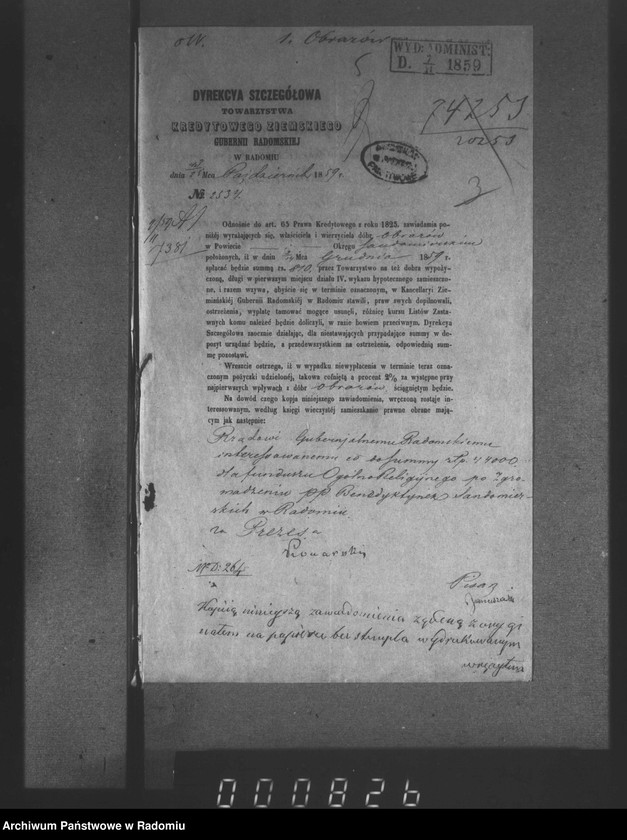 1. Obrazów
WYD: ADMINIST:
D. 2/11 1859
DYREKCYA SZCZEGÓŁOWA
TOWARZYSTWA
KREDYTOWEGO ZIEMSKIEGO
GUBERNII RADOMSKIEJ
W RADOMIU
74253
20253
dnia Mca Października 1859 r.
№ 2534.
3
7381
Odnośnie do art. 65 Prawa Kredytowego z roku 1825. zawiadamia po-
niżéj wyrażających się, właściciela i wierzyciela dóbr Obrazów
w Powiecie Okręgu Sandomierskim
położonych, iż w dniu Mca Grudnia 1859 r.
spłacać będzie summą rs. 810, przez Towarzystwo na też dobra wypoży-
czoną, długi w pierwszym miejscu działu IV. wykazu hypotecznego zamieszczo-
ne, i razem wzywa, abyście się w terminie oznaczonym, w Kancellaryi Zie-
miańskiéj Gubernii Radomskiéj w Radomiu stawili, praw swych dopilnowali,
ostrzeżenia, wypłatę tamować mogące usunęli, różnicę kursu Listów Zasta-
wnych komu należeć będzie doliczyli, w razie bowiem przeciwnym, Dyrekcya
Szczegółowa zaocznie działając, dla niestawających przypadające summy w de-
pozyt urządzać będzie, a przedewszystkiem na ostrzeżenia, odpowiednią sum-
mę pozostawi.
Wreszcie ostrzega, iż w wypadku niewypłacenia w terminie teraz ozna-
czonym pożyczki udzielonéj, takowa cofniętą a procent 2% za występne przy
najpierwszych wpływach z dóbr Obrazów, ściągniętym będzie.
Na dowód czego kopja niniejszego zawiadomienia, wręczoną zostaje in-
teresowanym, według księgi wieczystéj zamieszkanie prawne obrane mają-
cym jak następnie:
Rządowi Gubernjalnemu Radomskiemu
interessowanemu co do summy złp. 44000
dla funduszu Ogólno Religijnego po Zgro-
madzeniu pp. Benedyktynek Sandomier-
skich w Radomiu
za Prezesa
№ D: 264
Pisarz
Kopiią niniejszą zawiadomienia zgodną z orygi
nałem na papierze bez stempla wydrukowanym
wręczyłem
000826
Archiwum Państwowe w Radomiu